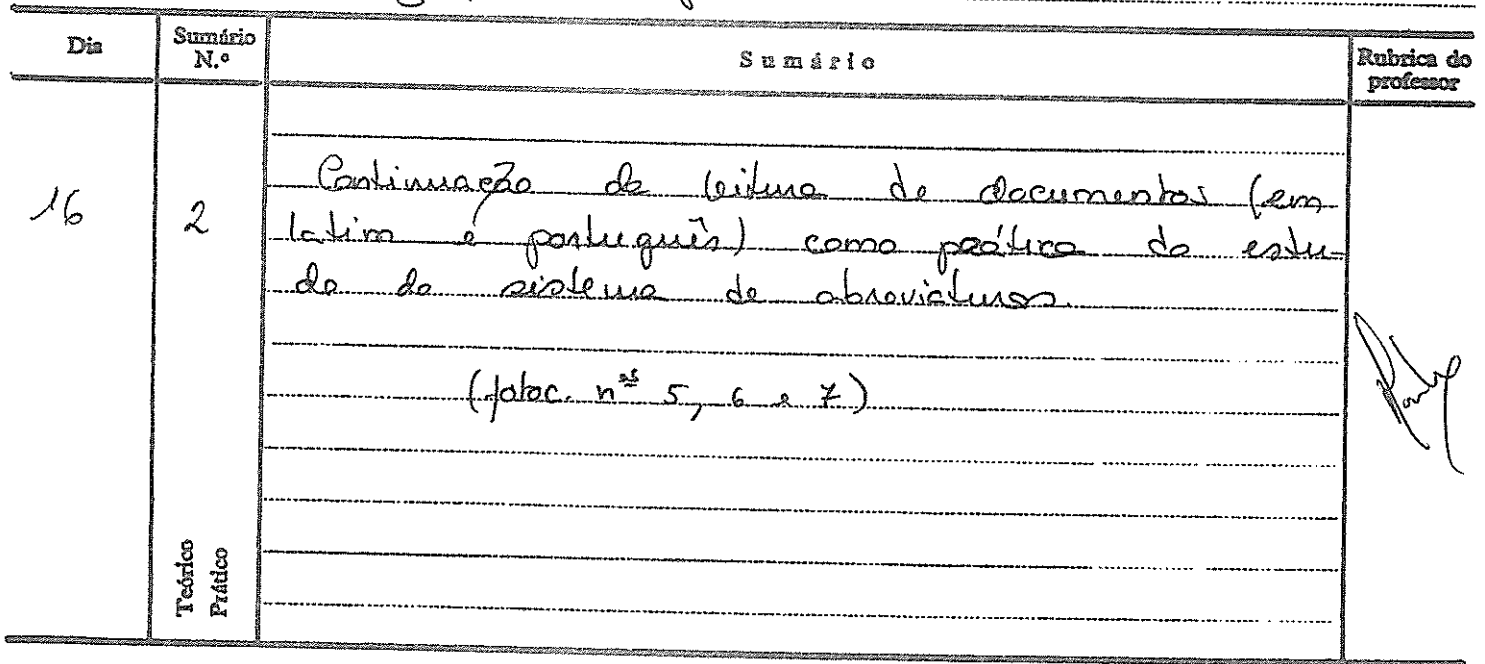 Dia Sumário N.º Sumário Rubrica do professor
16 2
Continuação da leitura de documentos (em
latim e português) como prática do estu-
do do sistema de abreviaturas.
(fotoc. nºs 5, 6 e 7)
Teórico
Prático